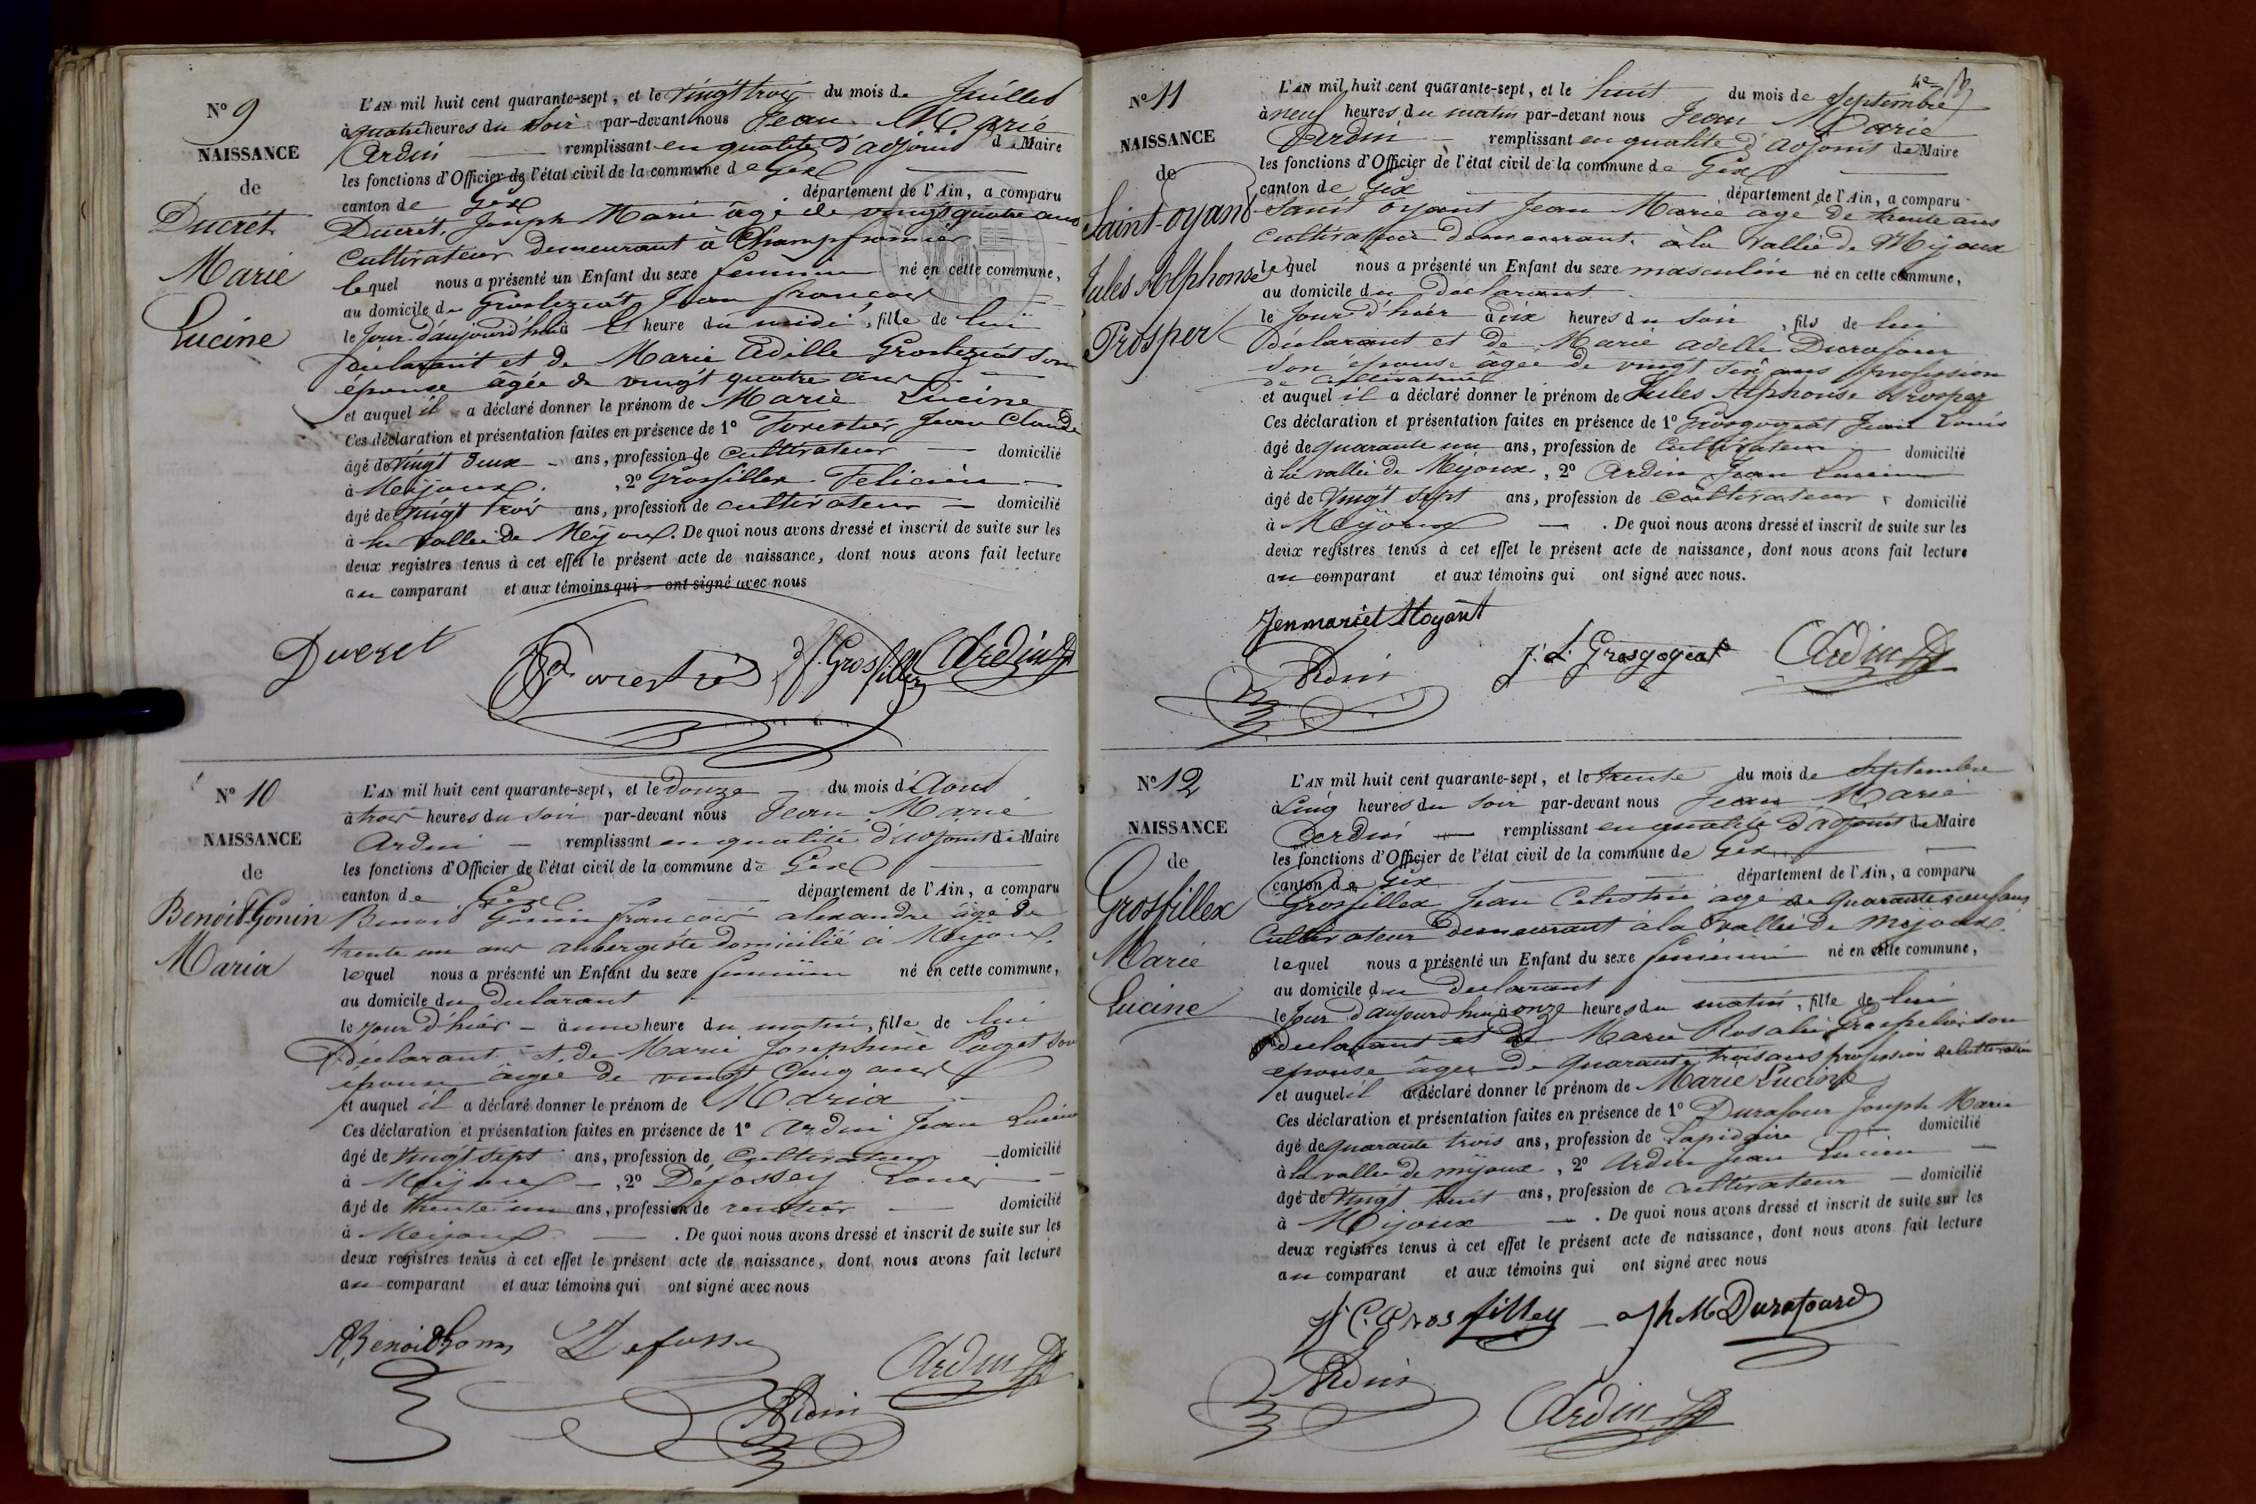 N° 9
NAISSANCE
de
Ducret
Marie
Lucine
L'AN mil huit cent quarante-sept, et le vingt trois du mois de Juillet
à quatre heures du soir par-devant nous Jean Marie
Ardin remplissant en qualité d'adjoint de Maire
les fonctions d'Officier de l'état civil de la commune de Gex
canton de Gex département de l'Ain, a comparu
Ducret Joseph Marie âgé de vingt quatre ans
Cultivateur demeurant à Champfromier
lequel nous a présenté un Enfant du sexe féminin né en cette commune,
au domicile de Jean françois
le Jour d'aujourd'hui à heure du midi, fille de lui
déclarant et de Marie Adille son
épouse âgée de vingt quatre ans
et auquel il a déclaré donner le prénom de Marie Lucine
Ces déclaration et présentation faites en présence de 1° Forestier Jean Claude
âgé de vingt deux ans, profession de cultivateur domicilié
à Meijoux, 2° Grosfillex Felicien
âgé de vingt trois ans, profession de cultivateur domicilié
à la vallée de Meijoux. De quoi nous avons dressé et inscrit de suite sur les
deux registres tenus à cet effet le présent acte de naissance, dont nous avons fait lecture
au comparant et aux témoins qui ont signé avec nous
Ducret f. Grosfillex Ardin
N° 10
NAISSANCE
de
Benoit-Gonin
Maria
L'AN mil huit cent quarante-sept, et le douze du mois d'Aout
à trois heures du soir par-devant nous Jean Marie
Ardin remplissant en qualité d'adjoint de Maire
les fonctions d'Officier de l'état civil de la commune de Gex
canton de Gex département de l'Ain, a comparu
Benoit Gonin françois alexandre âgé de
trente un ans aubergiste domicilié à Meijoux
lequel nous a présenté un Enfant du sexe féminin né en cette commune,
au domicile du déclarant
le jour d'hier à une heure du matin, fille de lui
déclarant et de Marie Josephine Paget son
épouse âgée de vingt cinq ans
et auquel il a déclaré donner le prénom de Maria
Ces déclaration et présentation faites en présence de 1° Ardin Jean Lucien
âgé de vingt sept ans, profession de cultivateur domicilié
à Meijoux, 2° Défossey Louis
âgé de trente un ans, profession de rentier domicilié
à Meijoux. De quoi nous avons dressé et inscrit de suite sur les
deux registres tenus à cet effet le présent acte de naissance, dont nous avons fait lecture
au comparant et aux témoins qui ont signé avec nous
Ardin
Ardin
N° 11
NAISSANCE
de
Saint-oyant
Jules Alphonse
Prosper
L'AN mil huit cent quarante-sept, et le huit du mois de Septembre
à neuf heures du matin par-devant nous Jean Marie
Ardin remplissant en qualité d'adjoint de Maire
les fonctions d'Officier de l'état civil de la commune de Gex
canton de Gex département de l'Ain, a comparu
Saint oyant Jean Marie agé de trente ans
Cultivateur demeurant à la vallée de Mijoux
lequel nous a présenté un Enfant du sexe masculin né en cette commune,
au domicile du déclarant
le Jour d'hier à dix heures du soir, fils de lui
déclarant et de Marie adelle Durafour
son épouse âgée de vingt six ans profession
de cultivatrice
et auquel il a déclaré donner le prénom de Jules Alphonse Prosper
Ces déclaration et présentation faites en présence de 1° Grosgogeat Jean Louis
âgé de quarante un ans, profession de Cultivateur domicilié
à la vallée de Mijoux, 2° Ardin Jean Lucien
âgé de vingt sept ans, profession de cultivateur domicilié
à Meijoux. De quoi nous avons dressé et inscrit de suite sur les
deux registres tenus à cet effet le présent acte de naissance, dont nous avons fait lecture
au comparant et aux témoins qui ont signé avec nous.
J. L. Grosgogeat Ardin
Ardin
N° 12
NAISSANCE
de
Grosfillex
Marie
Lucine
L'AN mil huit cent quarante-sept, et le trente du mois de Septembre
à Cinq heures du soir par-devant nous Jean Marie
Ardin remplissant en qualité d'adjoint de Maire
les fonctions d'Officier de l'état civil de la commune de Gex
canton de Gex département de l'Ain, a comparu
Grosfillex Jean Celestin agé de quarante neuf ans
Cultivateur demeurant à la vallée de Mijoux
lequel nous a présenté un Enfant du sexe feminin né en cette commune,
au domicile du déclarant
le Jour d'aujourd'hui à onze heures du matin, fille de lui
déclarant et de Marie Rosalie son
épouse âgée de quarante trois ans profession
et auquel il a déclaré donner le prénom de Marie Lucine
Ces déclaration et présentation faites en présence de 1° Durafour Joseph Marie
âgé de quarante trois ans, profession de Lapidaire domicilié
à la vallée de mijoux, 2° Ardin Jean Lucien
âgé de vingt huit ans, profession de cultivateur domicilié
à Mijoux. De quoi nous avons dressé et inscrit de suite sur les
deux registres tenus à cet effet le présent acte de naissance, dont nous avons fait lecture
au comparant et aux témoins qui ont signé avec nous
J. C. Grosfilley Jh M Durafourd
Ardin
Ardin